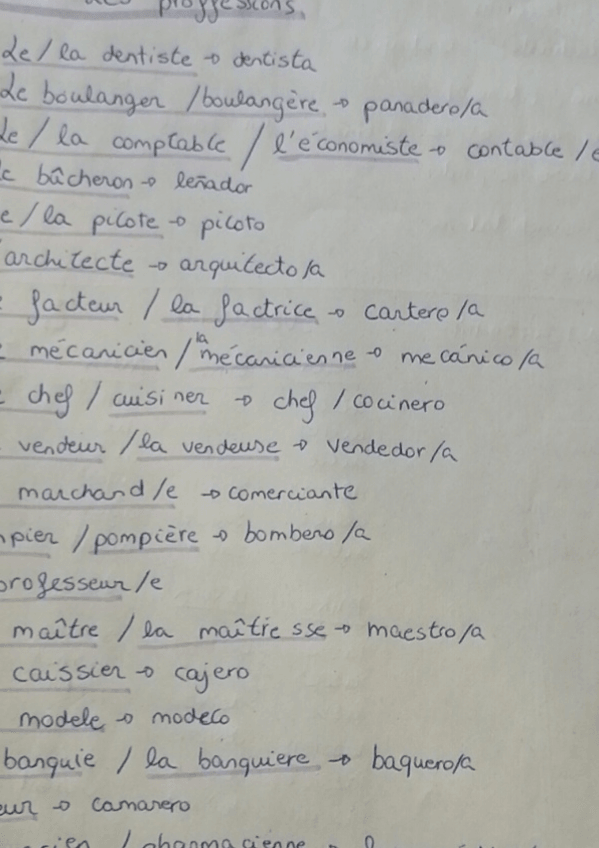 proffessions.
le / la dentiste → dentista
Le boulanger / boulangère → panadero/a
le / la comptable / l'économiste → contable /e
bûcheron → leñador
/ la pilote → piloto
architecte → arquitecto/a
facteur / la factrice → cartero/a
mécanicien / la mécanicienne → mecánico/a
chef / cuisiner → chef / cocinero
vendeur / la vendeuse → vendedor/a
marchand/e → comerciante
pier / pompière → bombero/a
professeur/e
maître / la maîtresse → maestro/a
caissier → cajero
modele → modelo
banquie / la banquiere → baquero/a
eur → camarero
cien / pharmacienne →